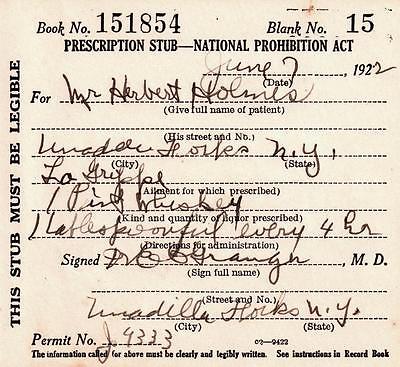 Book No. 151854 Blank No. 15
PRESCRIPTION STUB—NATIONAL PROHIBITION ACT
June 7, 1922
(Date)
For Mr Herbert Holmes
(Give full name of patient)
(His street and No.)
Unadilla Forks N.Y.
(City) (State)
La Grippe
(Ailment for which prescribed)
1 Pint Whiskey
(Kind and quantity of liquor prescribed)
1 tablespoonful every 4 hor
(Directions for administration)
Signed , M. D.
(Sign full name)
(Street and No.)
Unadilla Forks N.Y.
(City) (State)
Permit No. J 9333 O2—9422
The information called for above must be clearly and legibly written. See instructions in Record Book
THIS STUB MUST BE LEGIBLE